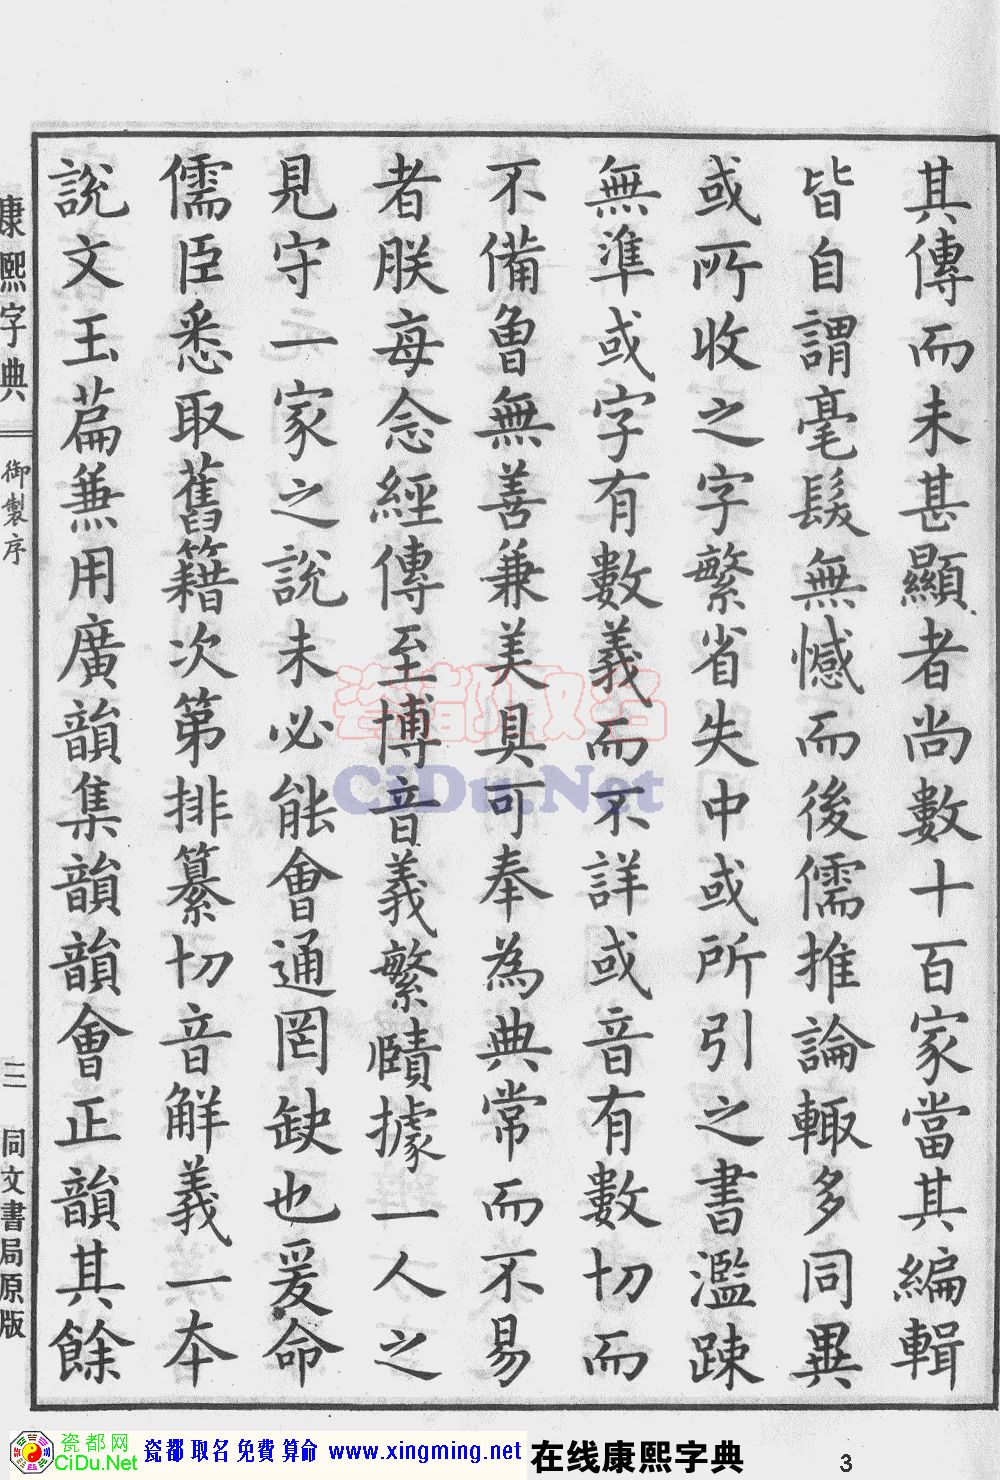 其傳而未甚顯者尚數十百家當其編輯
皆自謂毫髮無憾而後儒推論輙多同異
或所收之字繁省失中或所引之書濫踈
無準或字有數義而不詳或音有數切而
不備曾無善兼美具可奉為典常而不易
者朕每念經傳至博音義繁賾據一人之
見守一家之說未必能會通罔缺也爰命
儒臣悉取舊籍次第排纂切音解義一本
說文玉篇兼用廣韻集韻韻會正韻其餘
康熙字典
御製序
三
同文書局原版
瓷都取名
CiDu.Net
瓷都网
CiDu.Net
瓷都取名免費算命 www.xingming.net
在线康熙字典
3